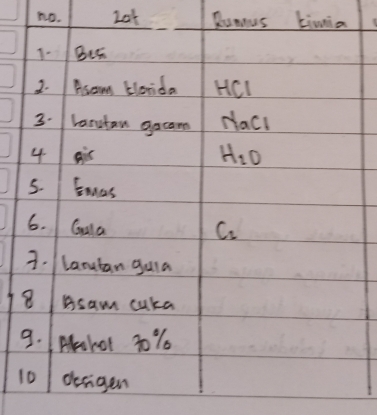 no. zat Rumus kimia
1. Besi
2. Asam klorida HCl
3. Larutan garam NaCl
4 air H₂O
5. Emas
6. Gula C₂
7. Larutan gula
8 Asam cuka
9. Alkohol 70%
10 oksigen